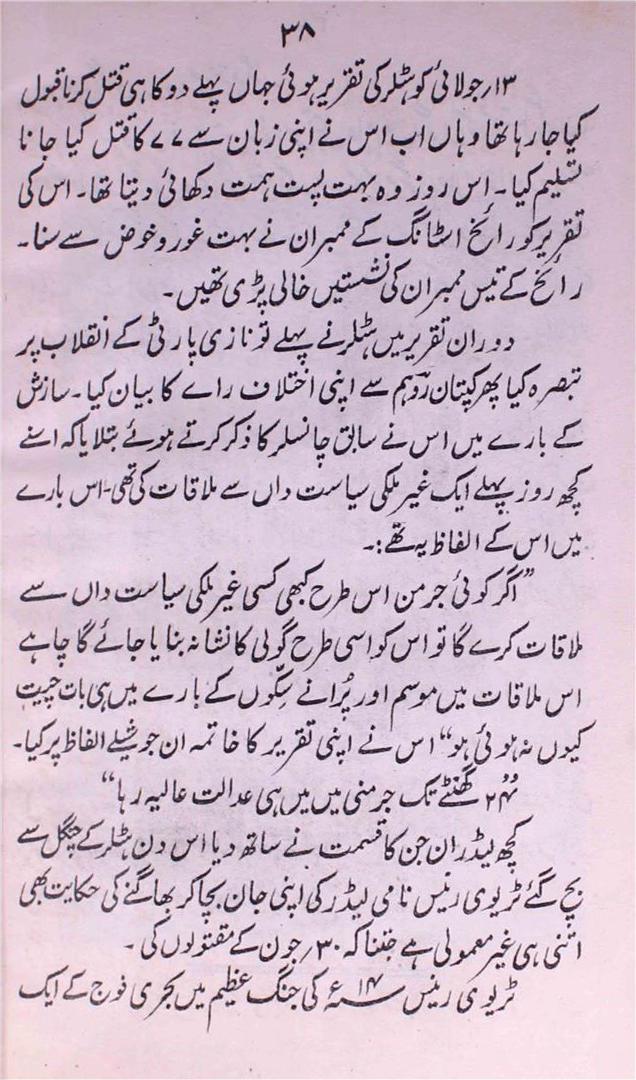 ۳۸
۱۳؍جولائی کو ہٹلر کی تقریر ہوئی جہاں پہلے دو کا ہی قتل کرنا قبول
کیا جا رہا تھا وہاں اب اس نے اپنی زبان سے ۷۷ کا قتل کیا جانا
تسلیم کیا۔ اس روز وہ بہت پست ہمت دکھائی دیتا تھا۔ اس کی
تقریر کو رائخ اسٹانگ کے ممبران نے بہت غور و خوض سے سنا۔
رائخ کے تیس ممبران کی نشستیں خالی پڑی تھیں۔
دوران تقریر میں ہٹلر نے پہلے تو نازی پارٹی کے انقلاب پر
تبصرہ کیا پھر کپتان روہم سے اپنی اختلاف راے کا بیان کیا۔ سازش
کے بارے میں اس نے سابق چانسلر کا ذکر کرتے ہوئے بتلایا کہ اسنے
کچھ روز پہلے ایک غیر ملکی سیاست داں سے ملاقات کی تھی۔ اس بارے
میں اس کے الفاظ یہ تھے:۔
”اگر کوئی جرمن اس طرح کبھی کسی غیر ملکی سیاست داں سے
ملاقات کرے گا تو اس کو اسی طرح گولی کا نشانہ بنایا جائے گا چاہے
اس ملاقات میں موسم اور پُرانے سکّوں کے بارے میں ہی بات چیت
کیوں نہ ہوئی ہو“ اس نے اپنی تقریر کا خاتمہ ان جوشیلے الفاظ پر کیا۔
”۲۴ گھنٹے تک جرمنی میں میں ہی عدالت عالیہ رہا“
کچھ لیڈران جن کا قسمت نے ساتھ دیا اس دن ہٹلر کے چنگل سے
بچ گئے ٹریوی رینس نامی لیڈر کی اپنی جان بچا کر بھاگنے کی حکایت بھی
اتنی ہی غیر معمولی ہے جتنا کہ ۳۰؍جون کے مقتولوں کی۔
ٹریوی رینس ۱۴ء کی جنگ عظیم میں بحری فوج کے ایک